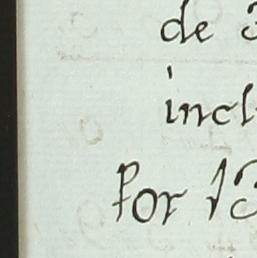 de 3
incl
Por 13